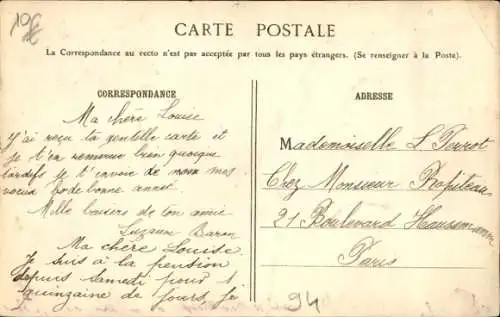 10€
CARTE POSTALE
La Correspondance au recto n'est pas acceptée par tous les pays étrangers. (Se renseigner à la Poste).
CORRESPONDANCE
Ma chère Louise
J'ai reçu ta gentille carte et
je t'en remercie bien quoique
tardifs je t'envoie de mon mes
voeux de bonne année
Mille baisers de ton amie
Suzanne
Ma chère Louise
Je suis à la pension
depuis samedi pour 1
quinzaine de jours, je
ADRESSE
Mademoiselle L Perrot
Chez Monsieur Propiteau
21 Boulevard Haussmann
Paris
94